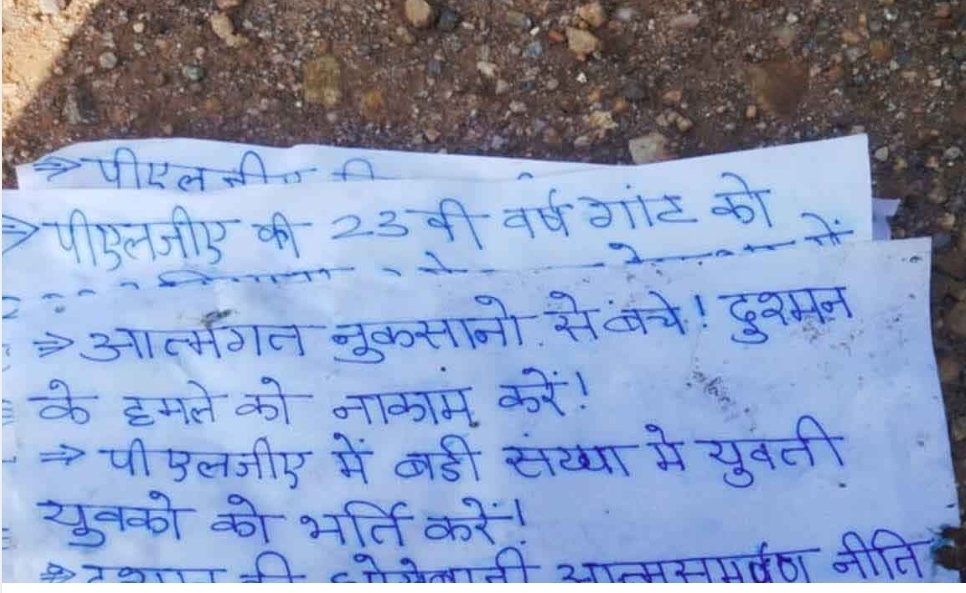 ⇒ पीएलजीए की
⇒ पीएलजीए की 23 वी वर्ष गांट को
में
⇒ आत्मगत नुकसानो से बंचे! दुश्मन
के हमले को नाकाम करें!
⇒ पीएलजीए में बडी संख्या मे युवती
युवको को भर्ति करें!
⇒ दुश्मन की धोखेबाजी आत्मसमर्पण नीति